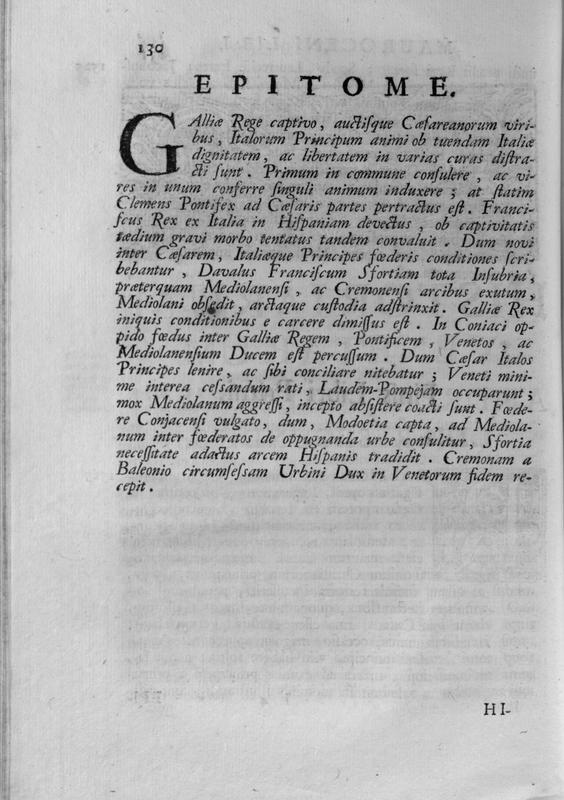 130
EPITOME.
GAlliæ Rege captivo, auctiſque Cæſareanorum viri-
bus, Italorum Principum animi ob tuendam Italiæ
dignitatem, ac libertatem in varias curas diſtra-
cti ſunt. Primum in commune conſulere, ac vi-
res in unum conferre ſinguli animum induxere; at ſtatim
Clemens Pontifex ad Cæſaris partes pertractus eſt. Franci-
ſcus Rex ex Italia in Hiſpaniam devectus, ob captivitatis
tædium gravi morbo tentatus tandem convaluit. Dum novi
inter Cæſarem, Italiæque Principes fœderis conditiones ſcri-
bebantur, Davalus Franciſcum Sfortiam tota Inſubria,
præterquam Mediolanenſi, ac Cremonenſi arcibus exutum,
Mediolani obſedit, arctaque cuſtodia adſtrinxit. Galliæ Rex
iniquis conditionibus e carcere dimiſſus eſt. In Coniaci op-
pido fœdus inter Galliæ Regem, Pontificem, Venetos, ac
Mediolanenſium Ducem eſt percuſſum. Dum Cæſar Italos
Principes lenire, ac ſibi conciliare nitebatur; Veneti mini-
me interea ceſsandum rati, Laudem-Pompejam occuparunt;
mox Mediolanum aggreſſi, incepto abſiſtere coacti ſunt. Fœde-
re Conjacenſi vulgato, dum, Modoetia capta, ad Mediola-
num inter fœderatos de oppugnanda urbe conſulitur, Sfortia
neceſſitate adactus arcem Hiſpanis tradidit. Cremonam a
Baleonio circumſeſsam Urbini Dux in Venetorum fidem re-
cepit.
HI-